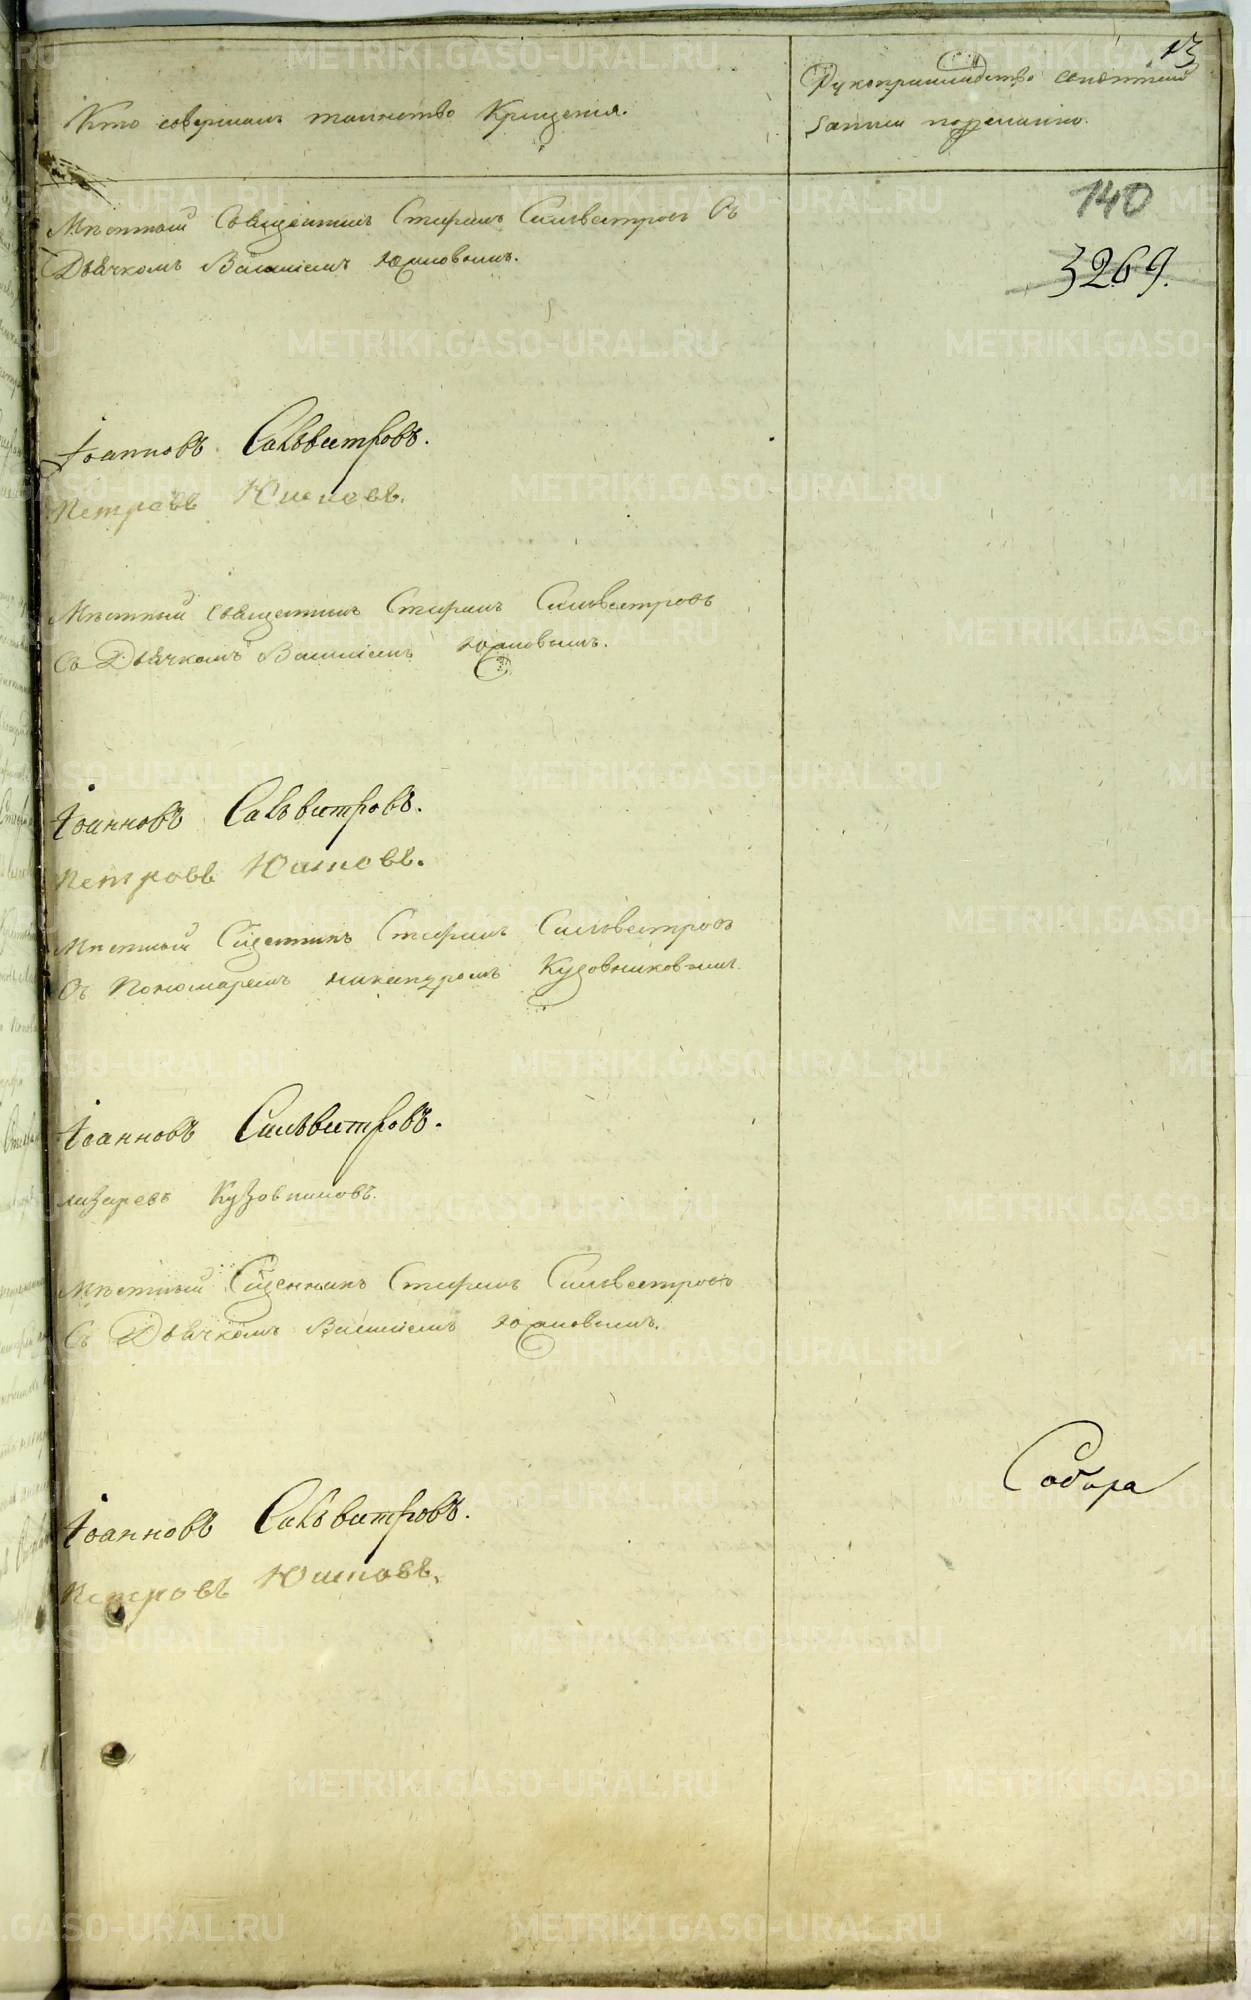 13
Кто совершалъ таинство Крещенія.
Рукоприкладство свидѣтелей
записи по желанію.
140
3269.
Мѣстный Священникъ Стефанъ Сильвестровъ Съ
Дьячкомъ Василіемъ Юшковымъ.
Іоанновъ Сильвестровъ.
Петровъ Юшковъ.
Мѣстный священникъ Стефанъ Сильвестровъ
Съ Дьячкомъ Василіемъ Юшковымъ.
Іоанновъ Сильвестровъ.
Петровъ Юшковъ.
Мѣстный Сщенникъ Стефанъ Сильвестровъ
Съ Пономаремъ Никаноромъ Кузовниковымъ
Іоанновъ Сильвестровъ.
Лазаревъ Кузовниковъ.
Мѣстный Сщенникъ Стефанъ Сильвестровъ
Съ Дьячкомъ Василіемъ Юшковымъ.
Собора
Іоанновъ Сильвестровъ.
Петровъ Юшковъ.
METRIKI.GASO-URAL.RU